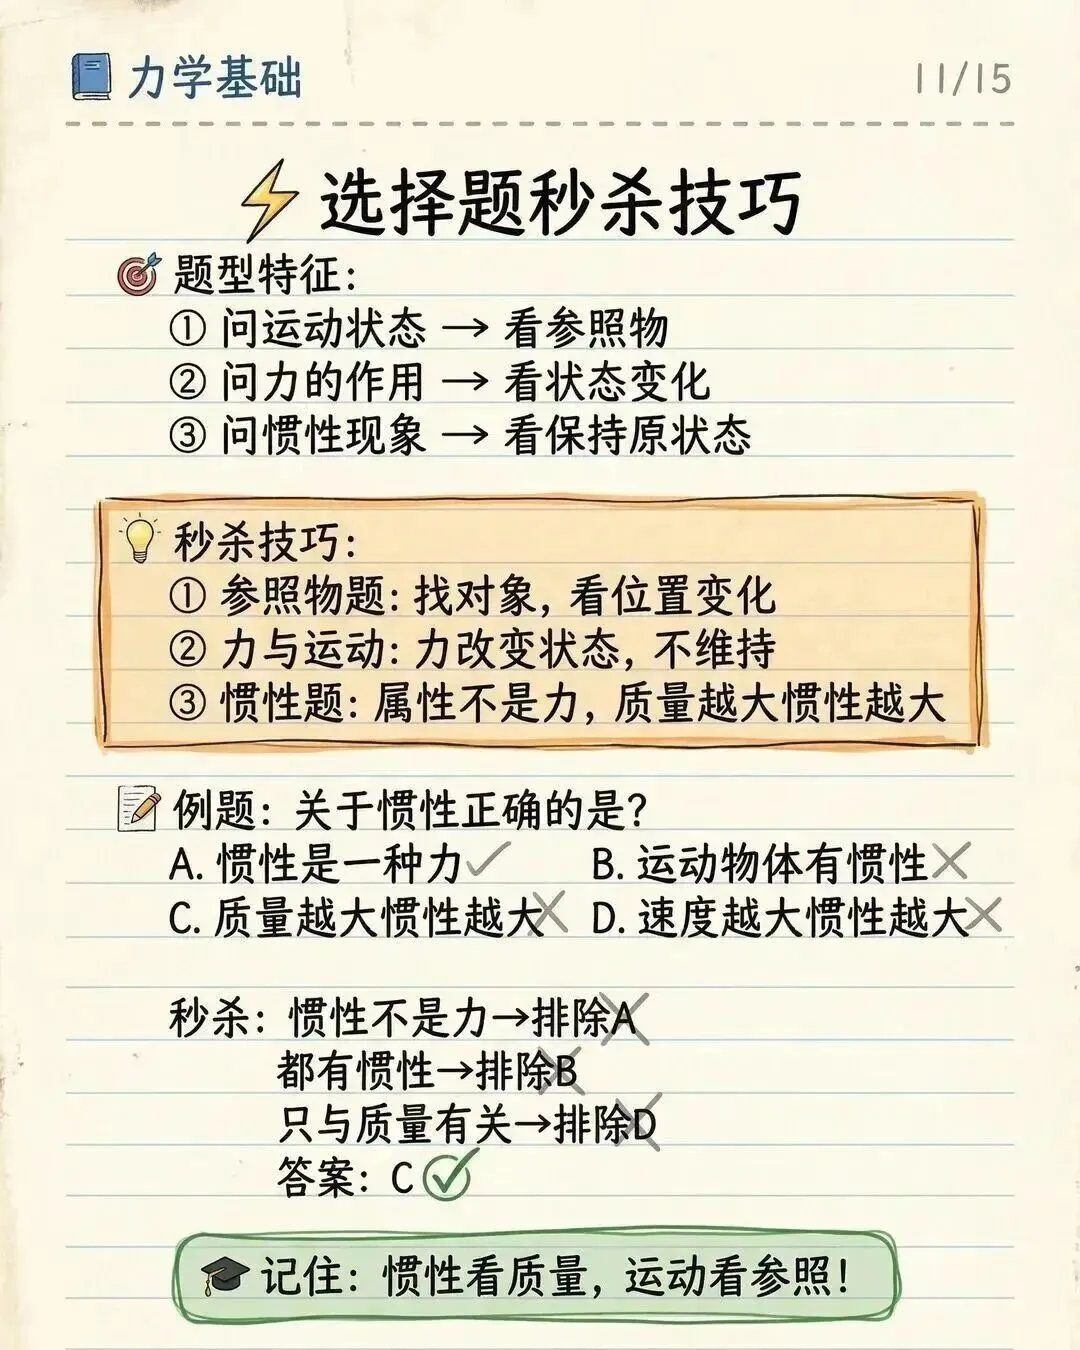 力学基础
11/15
选择题秒杀技巧
题型特征：
① 问运动状态 → 看参照物
② 问力的作用 → 看状态变化
③ 问惯性现象 → 看保持原状态
秒杀技巧：
① 参照物题：找对象，看位置变化
② 力与运动：力改变状态，不维持
③ 惯性题：属性不是力，质量越大惯性越大
例题：关于惯性正确的是？
A. 惯性是一种力✓ B. 运动物体有惯性×
C. 质量越大惯性越大× D. 速度越大惯性越大×
秒杀：惯性不是力→排除A
都有惯性→排除B
只与质量有关→排除D
答案：C✓
记住：惯性看质量，运动看参照！